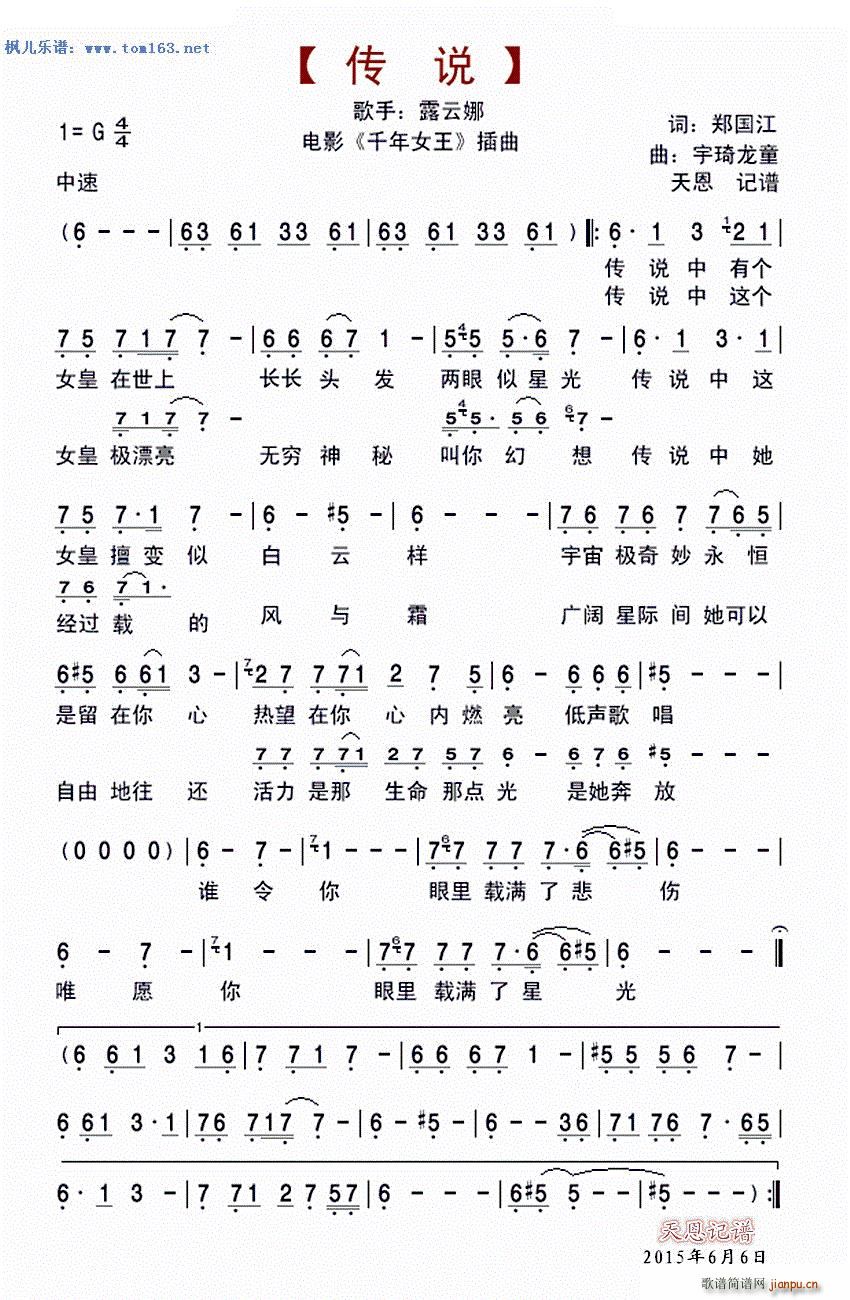 枫儿乐谱：www.tom163.net
【 传 说 】
歌手：露云娜
1= G 4/4
词：郑国江
电影《千年女王》插曲
曲：宇琦龙童
中速
天恩 记谱
(6 - - - | 63 61 33 61 | 63 61 33 61 ) ‖: 6· 1 3 1 21 |
传 说 中 有个
传 说 中 这个
7 5 7 1 7 7 - | 6 6 6 7 1 - | 5 4 5 5·6 7 - | 6· 1 3· 1 |
女皇 在世上 长长 头 发 两眼 似星光 传 说中 这
7 1 7 7 - 5 4 5· 5 6 6 7 -
女皇 极漂亮 无穷 神 秘 叫你 幻 想 传 说中 她
7 5 7·1 7 - | 6 - #5 - | 6 - - - | 76 76 7 7 6 5 |
女皇 擅变 似 白 云 样 宇宙 极奇 妙永 恒
7 6 7 1·
经过 载 的 风 与 霜 广阔 星际 间 她可以
6#5 6 61 3 - | 7 27 7 71 2 7 5 | 6 - 6 6 6 | #5 - - - |
是留 在你 心 热望 在你 心 内 燃 亮 低声歌 唱
7 7 7 71 27 57 6 - 6 7 6 #5 -
自由 地往 还 活力 是那 生命 那点 光 是她奔 放
(0 0 0 0) | 6 - 7 - | 7 1 - - - | 7 6 7 7 7 7·6 6#5 | 6 -
谁 令 你 眼里 载满 了 悲 伤
6 - 7 - | 7 1 - - | 7 6 7 7 7 7·6 6#5 | 6 - - - ‖
唯 愿 你 眼里 载满 了 星 光
1
(6 61 3 16 | 7 71 7 - | 66 67 1 - | #5 5 56 7 - |
6 61 3·1 | 76 717 7 - | 6 - #5 - | 6 - - 36 | 71 76 7· 65 |
6· 1 3 - | 7 71 2 7 57 | 6 - - - | 6#5 5 - - | #5 - - - ) :‖
天恩记谱
2015年6月6日
歌谱简谱网 jianpu.cn